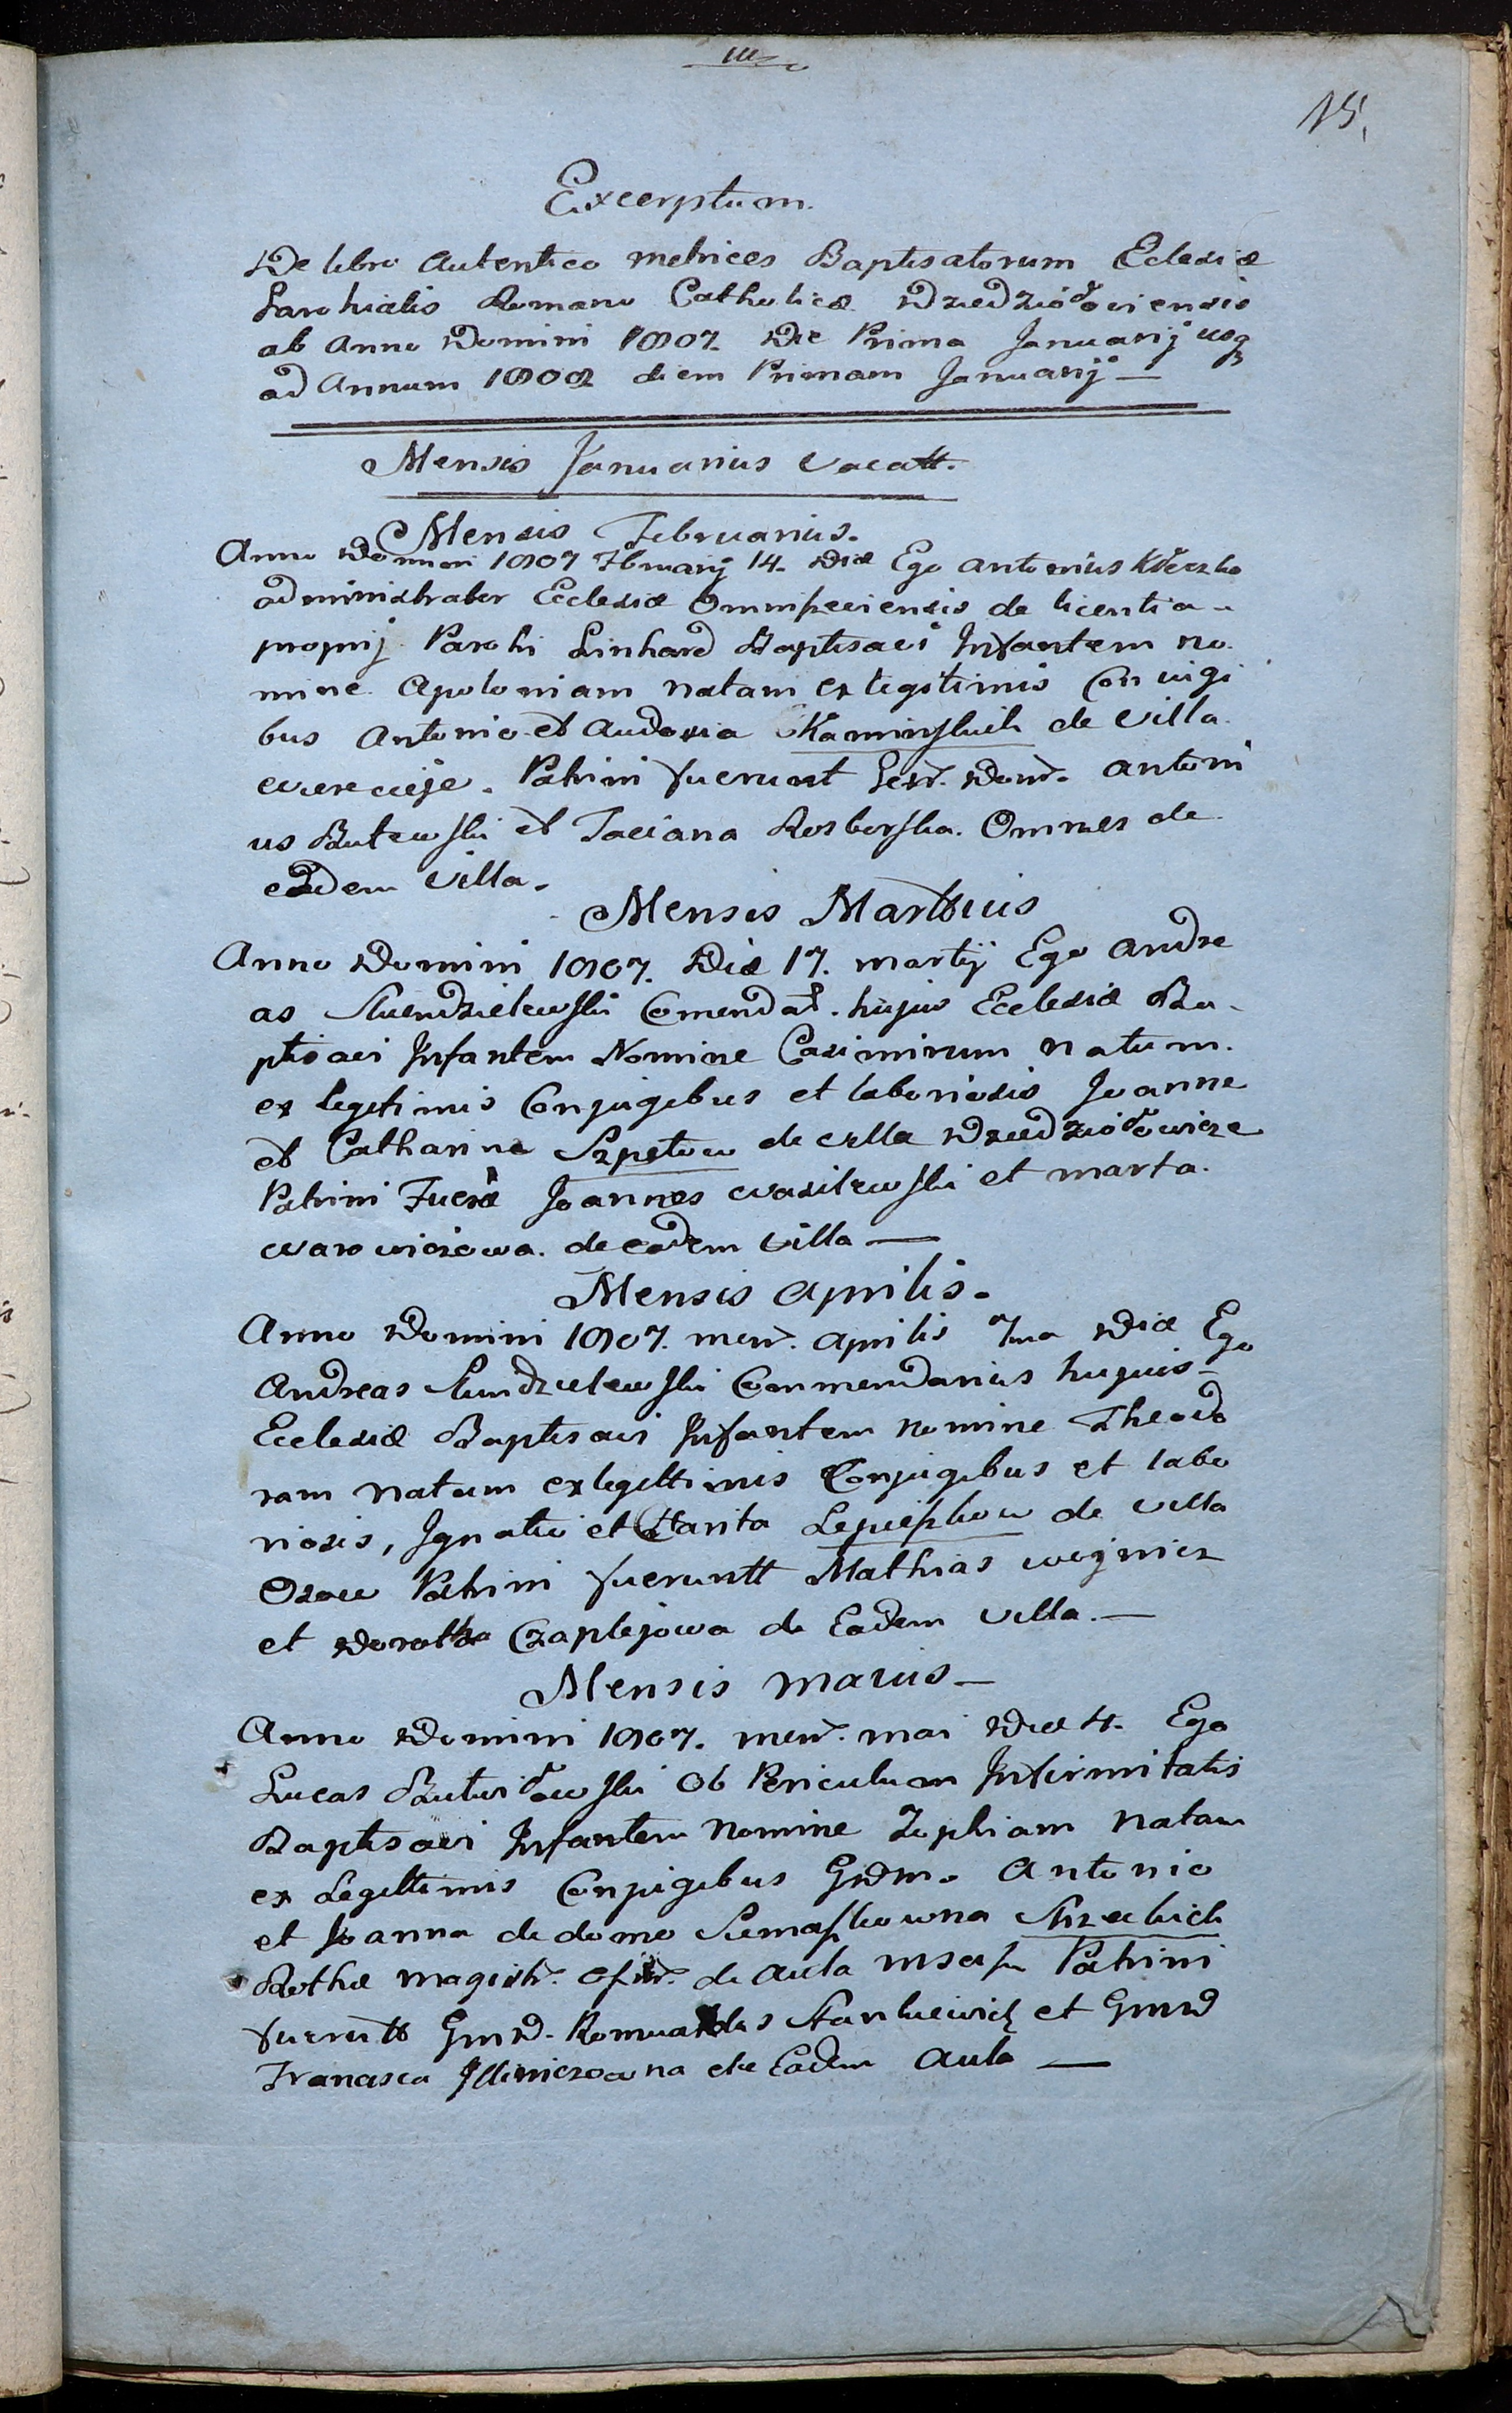 15.
Excerptum.
De libro Autentico metrices Baptisatorum Eclesiæ
Parohialis Romano Catholicæ Dziedziółoviensis
ab Anno Domini 1807 Die Prima Januarij usq
ad Annum 1808 diem Primam Januarij —
Mensis Januarius Vacatt.
Mensis Februarius.
Anno Domini 1807 Fbruarij 14. Die Ego Antonius
administrator Ecclesiæ de licentia
proprij Parohi Linhard Baptisavi Infantem no
mine Apoloniam natam ex legitimis Coniugi
bus Antonio et Audosia Kaminskich de Villa
Wereweje. Patrini fuerunt Antoni
us Butewski et Taciana Rosborska. Omnes de
eadem Villa.
Mensis Marttius
Anno Domini 1807. Die 17. martij Ego Andre
as Commendat. hujus Ecclesiæ Ba
ptisavi Infantem Nomine Casimirum natum
ex legitimis Conjugibus et laboriosis Joanne
et Catharina Szpetow de villa Dziedziółowicze
Patrini Fueræ Joannes Wasilewski et Marta
Warowiczowa. de eadem Villa —
Mensis Aprilis.
Anno Domini 1807. men. Aprilis 7ma Die Ego
Andreas Commendarius hujus
Ecclesiæ Baptisavi Infantem nomine Theodo
ram natam ex legittimis Conjugibus et labo
riosis, Ignatio et Harita de villa
Osow Patrini fueruntt Mathias Wojnicz
et Dorothea Czaplejowa de Eadem Villa. —
Mensis Maius —
Anno Domini 1807. men. mai Die 4. Ego
Lucas Butwiłowski Ob Periculum Infirmitatis
Baptisavi Infantem Nomine Zophiam Natam
ex Legittimis Conjugibus Antonio
et Joanna de domo Siemaszkowna
de Aula Patrini
fueruntt Romualdus Stankiewicz et
Francisca Illiniczowna de Eadem Aula —